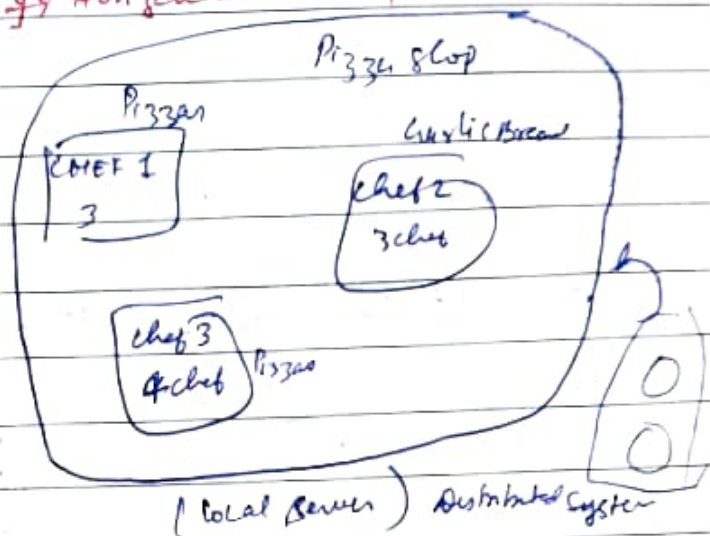 Pizza Shop
Pizzas
Garlic Bread
CHEF 1
3
chef 2
3 chef
chef 3
4 chef
Pizzas
(local server) Distributed System